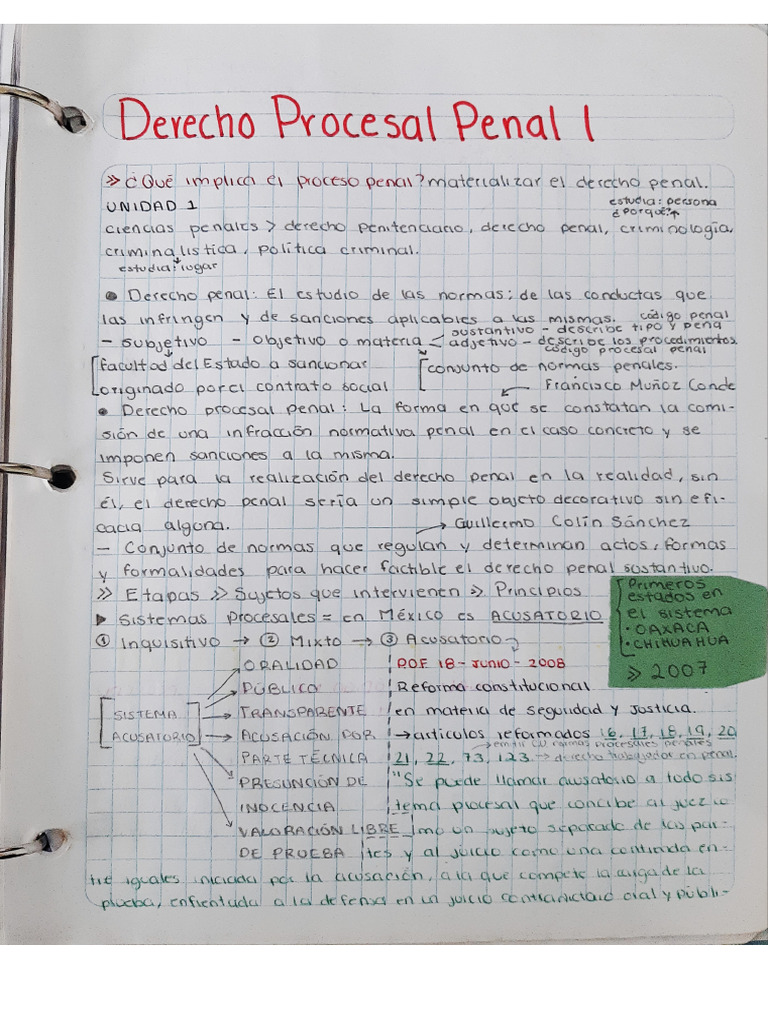 Derecho Procesal Penal 1
» ¿Qué implica el proceso penal? materializar el derecho penal.
UNIDAD 1
estudia: persona
¿porqué?
ciencias penales > derecho penitenciario, derecho penal, criminología,
criminalística, política criminal.
estudia: lugar
• Derecho penal: El estudio de las normas; de las conductas que
las infringen y de sanciones aplicables a las mismas.
código penal
sustantivo - describe tipo y pena
- subjetivo - objetivo o materia < adjetivo - describe los procedimientos
código procesal penal
[facultad del Estado a sancionar
originado por el contrato social
[conjunto de normas penales.
Francisco Muñoz Conde
• Derecho procesal penal: La forma en que se constatan la comi-
sión de una infracción normativa penal en el caso concreto y se
imponen sanciones a la misma.
Sirve para la realización del derecho penal en la realidad, sin
él, el derecho penal sería un simple objeto decorativo sin efi-
cacia alguna.
→ Guillermo Colín Sánchez
- Conjunto de normas que regulan y determinan actos, formas
y formalidades para hacer factible el derecho penal sustantivo.
» Etapas » Sujetos que intervienen » Principios
▸ Sistemas procesales = en México es ACUSATORIO
① Inquisitivo → ② Mixto → ③ Acusatorio
Primeros
estados en
el sistema
• OAXACA
• CHIHUAHUA
» 2007
[SISTEMA
ACUSATORIO]
ORALIDAD
PÚBLICO
TRANSPARENTE
ACUSACIÓN POR
PARTE TÉCNICA
PRESUNCIÓN DE
INOCENCIA
VALORACIÓN LIBRE
DE PRUEBA
DOF 18 - JUNIO - 2008
Reforma constitucional
en materia de seguridad y justicia.
→ artículos reformados 16, 17, 18, 19, 20
normas procesales penales
21, 22, 73, 123 → derecho trabajador en penal.
"Se puede llamar acusatorio a todo sis
tema procesal que concibe al juez co
mo un sujeto separado de las par-
tes y al juicio como una contienda en-
tre iguales iniciada por la acusación, a la que compete la carga de la
prueba, enfrentada a la defensa en un juicio contradictorio oral y públi-